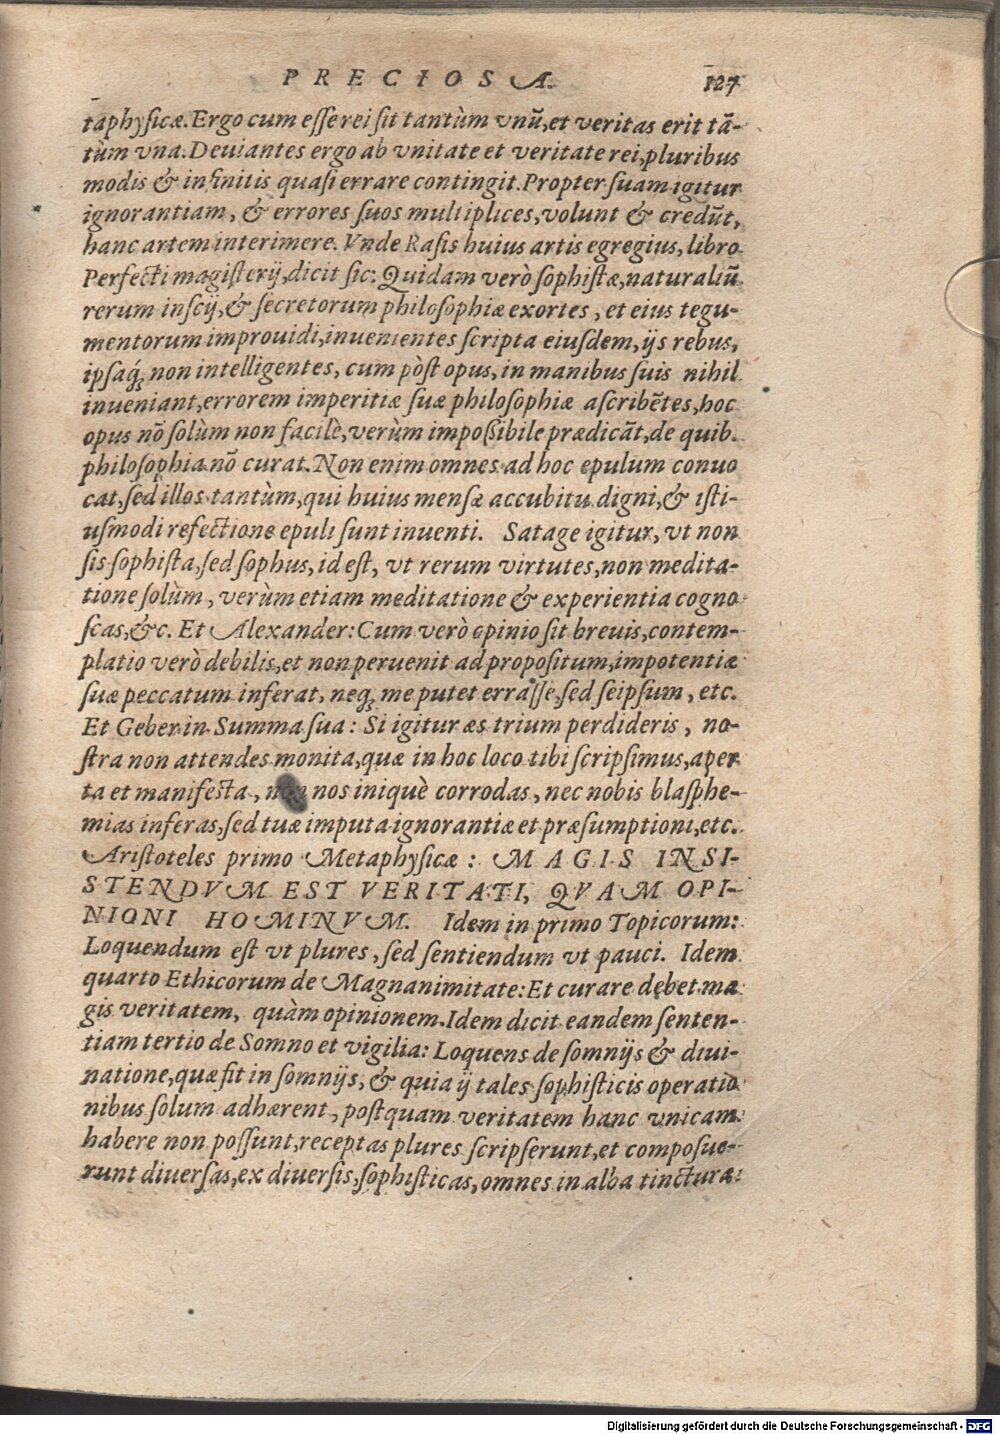 PRECIOSA. 127
taphysicæ. Ergo cum esse rei sit tantùm vnũ, et veritas erit tã-
tùm vna. Deuiantes ergo ab vnitate et veritate rei, pluribus
modis & infinitis quasi errare contingit. Propter suam igitur
ignorantiam, & errores suos multiplices, volunt & credũt,
hanc artem interimere. Vnde Rasis huius artis egregius, libro
Perfecti magisterij, dicit sic: Quidam verò sophistæ, naturaliũ
rerum inscij, & secretorum philosophiæ exortes, et eius tegu-
mentorum improuidi, inuenientes scripta eiusdem, ijs rebus,
ipsaq́; non intelligentes, cum pòst opus, in manibus suis nihil
inueniant, errorem imperitiæ suæ philosophiæ ascribẽtes, hoc
opus nõ solùm non facilè, verùm impossibile prædicãt, de quib.
philosophia nõ curat. Non enim omnes ad hoc epulum conuo
cat, sed illos tantùm, qui huius mensæ accubitu digni, & isti-
usmodi refectione epuli sunt inuenti. Satage igitur, vt non
sis sophista, sed sophus, id est, vt rerum virtutes, non medita-
tione solùm, verùm etiam meditatione & experientia cogno
scas, &c. Et Alexander: Cum verò opinio sit breuis, contem-
platio verò debilis, et non peruenit ad propositum, impotentiæ
suæ peccatum inferat, neq; me putet errasse, sed seipsum, etc.
Et Geber in Summa sua: Si igitur æs trium perdideris, no-
stra non attendes monita, quæ in hoc loco tibi scripsimus, aper
ta et manifesta, non nos iniquè corrodas, nec nobis blasphe-
mias inferas, sed tuæ imputa ignorantiæ et præsumptioni, etc.
Aristoteles primo Metaphysicæ: MAGIS INSI-
STENDVM EST VERITATI, QVAM OPI-
NIONI HOMINVM. Idem in primo Topicorum:
Loquendum est vt plures, sed sentiendum vt pauci. Idem
quarto Ethicorum de Magnanimitate: Et curare debet ma
gis veritatem, quàm opinionem. Idem dicit eandem senten-
tiam tertio de Somno et vigilia: Loquens de somnijs & diui-
natione, quæ fit in somnijs, & quia ij tales sophisticis operatio
nibus solum adhærent, postquam veritatem hanc vnicam
habere non possunt, receptas plures scripserunt, et composue-
runt diuersas, ex diuersis, sophisticas, omnes in alba tinctura:
Digitalisierung gefördert durch die Deutsche Forschungsgemeinschaft - DFG